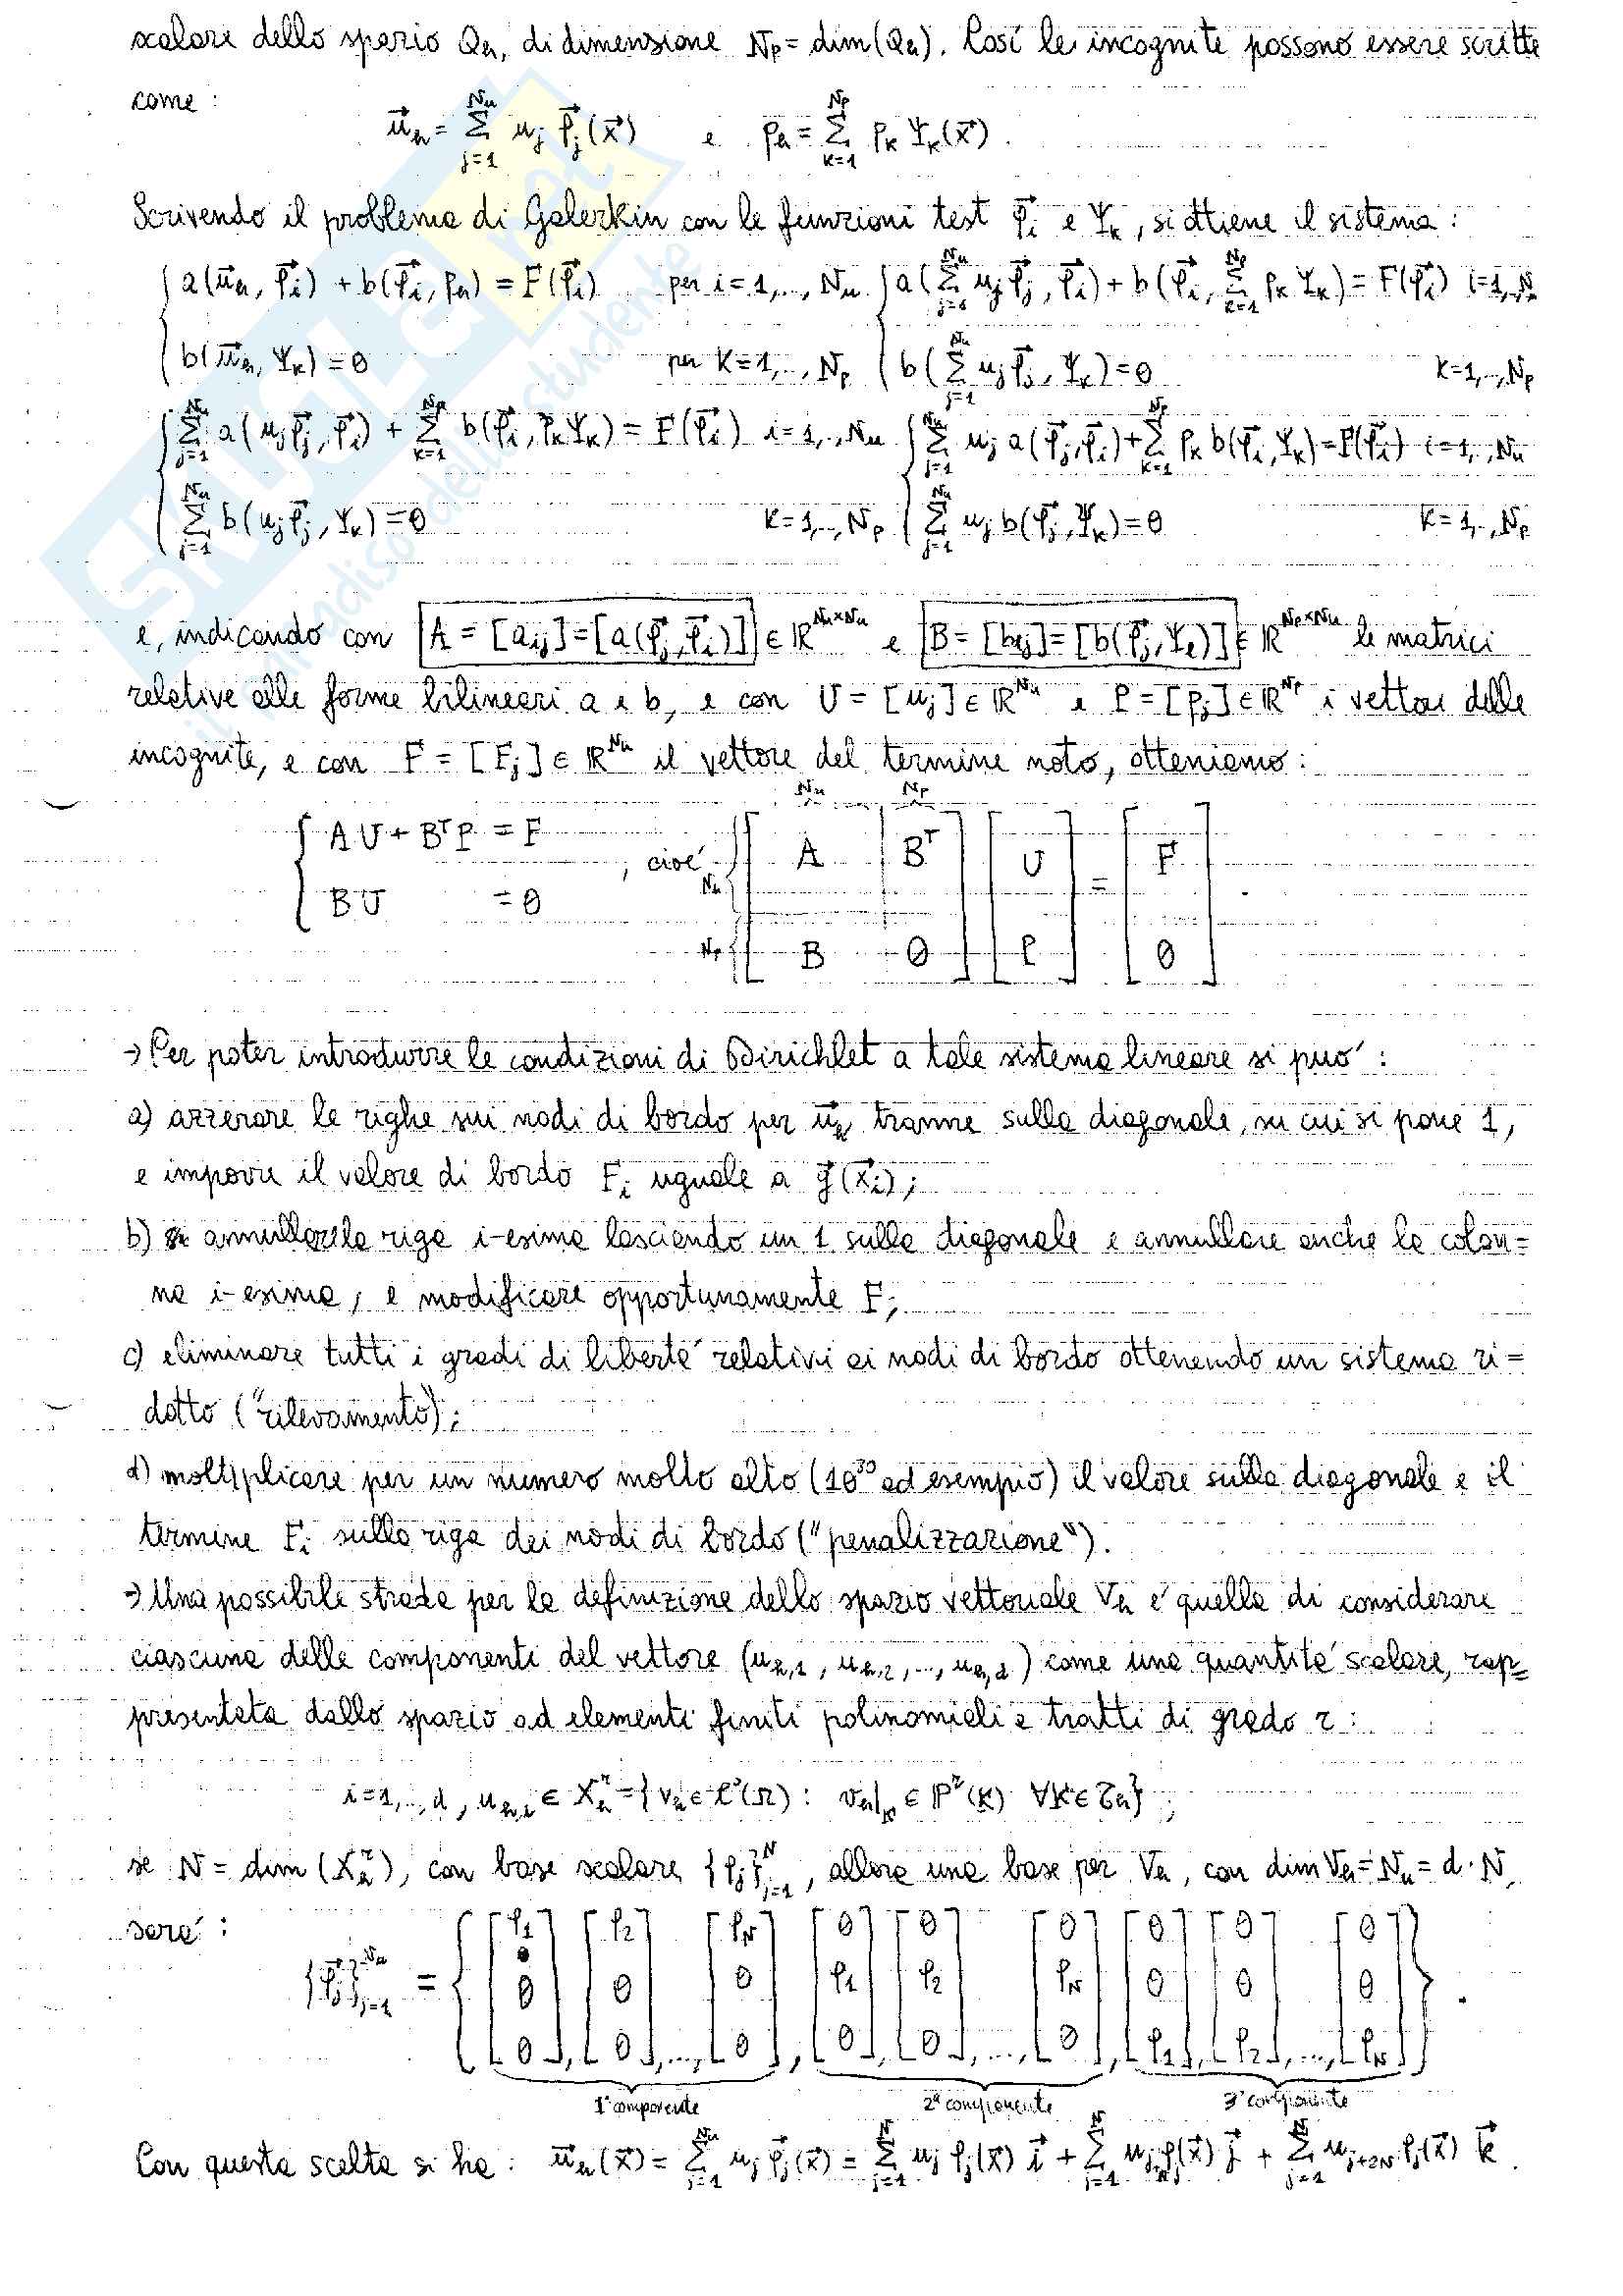 scalare dello spazio Qh, di dimensione Np = dim(Qh). Così le incognite possono essere scritte
come :
u⃗h = Σ_{j=1}^{Nu} uj φ⃗j(x⃗) e ph = Σ_{k=1}^{Np} pk Ψk(x⃗).
Scrivendo il problema di Galerkin con le funzioni test φ⃗i e Ψk, si ottiene il sistema :
{ a(u⃗h, φ⃗i) + b(φ⃗i, ph) = F(φ⃗i) per i = 1,.., Nu { a(Σ_{j=1}^{Nu} uj φ⃗j, φ⃗i) + b(φ⃗i, Σ_{k=1}^{Np} pk Ψk) = F(φ⃗i) i=1,..,N
b(u⃗h, Ψk) = 0 per k=1,.., Np b(Σ_{j=1}^{Nu} uj φ⃗j, Ψk) = 0 k=1,..,Np
{ Σ_{j=1}^{Nu} a(uj φ⃗j, φ⃗i) + Σ_{k=1}^{Np} b(φ⃗i, pk Ψk) = F(φ⃗i) i=1,.., Nu { Σ_{j=1}^{Nu} uj a(φ⃗j, φ⃗i) + Σ_{k=1}^{Np} pk b(φ⃗i, Ψk) = F(φ⃗i) i=1,..,Nu
Σ_{j=1}^{Nu} b(uj φ⃗j, Ψk) = 0 k=1,.., Np Σ_{j=1}^{Nu} uj b(φ⃗j, Ψk) = 0 k=1,..,Np
e, indicando con A = [aij] = [a(φ⃗j, φ⃗i)] ∈ ℝ^{Nu×Nu} e B = [bej] = [b(φ⃗j, Ψe)] ∈ ℝ^{Np×Nu} le matrici
relative alle forme bilineari a e b, e con U = [uj] ∈ ℝ^{Nu} e P = [pj] ∈ ℝ^{Np} i vettori delle
incognite, e con F = [Fj] ∈ ℝ^{Nu} il vettore del termine noto, otteniamo :
Nu Np
{ AU + BᵀP = F ; cioé Nu { [ A Bᵀ ] [ U ] = [ F ] .
BU = 0 Np { [ B 0 ] [ P ] [ 0 ]
→ Per poter introdurre le condizioni di Dirichlet a tale sistema lineare si puo' :
a) azzerare le righe sui nodi di bordo per u⃗h tranne sulla diagonale, su cui si pone 1,
e imporre il valore di bordo Fi uguale a g⃗(x⃗i);
b) annullare la riga i-esima lasciando un 1 sulla diagonale e annullare anche la colon=
na i-esima, e modificare opportunamente F;
c) eliminare tutti i gradi di libertà relativi ai nodi di bordo ottenendo un sistema ri=
dotto ("rilevamento");
d) moltiplicare per un numero molto alto (10³⁰ ad esempio) il valore sulla diagonale e il
termine Fi sulla riga dei nodi di bordo ("penalizzazione").
→ Una possibile strada per la definizione dello spazio vettoriale Vh é quella di considerare
ciascuna delle componenti del vettore (uh,1 , uh,2 , .., uh,d) come una quantità scalare, rap=
presentata dallo spazio ad elementi finiti polinomiali a tratti di grado r :
i=1,..,d , uh,i ∈ Xhʳ = { vh ∈ C⁰(Ω) : vh|K ∈ ℙʳ(K) ∀K ∈ τh } ;
se N = dim (Xhʳ), con base scalare {φj}_{j=1}^{N}, allora una base per Vh, con dim Vh = Nu = d·N,
sarà :
{φ⃗j}_{j=1}^{Nu} = { [φ1 0 0], [φ2 0 0], ..., [φN 0 0], [0 φ1 0], [0 φ2 0], ..., [0 φN 0], [0 0 φ1], [0 0 φ2], ..., [0 0 φN] } .
1° componente 2° componente 3° componente
Con questa scelta si ha : u⃗h(x⃗) = Σ_{j=1}^{Nu} uj φ⃗j(x⃗) = Σ_{j=1}^{N} uj φj(x⃗) i⃗ + Σ_{j=1}^{N} uj+N φj(x⃗) j⃗ + Σ_{j=1}^{N} uj+2N φj(x⃗) k⃗ .